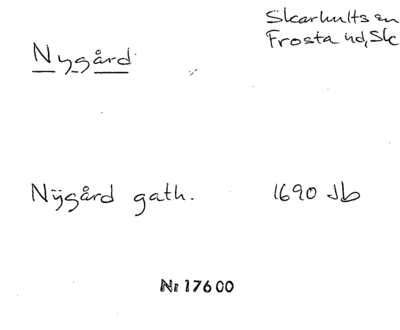 Skarhults sn
Frosta hd, Sk
Nygård
Nÿgård gath. 1690 Jb
Nr 17600